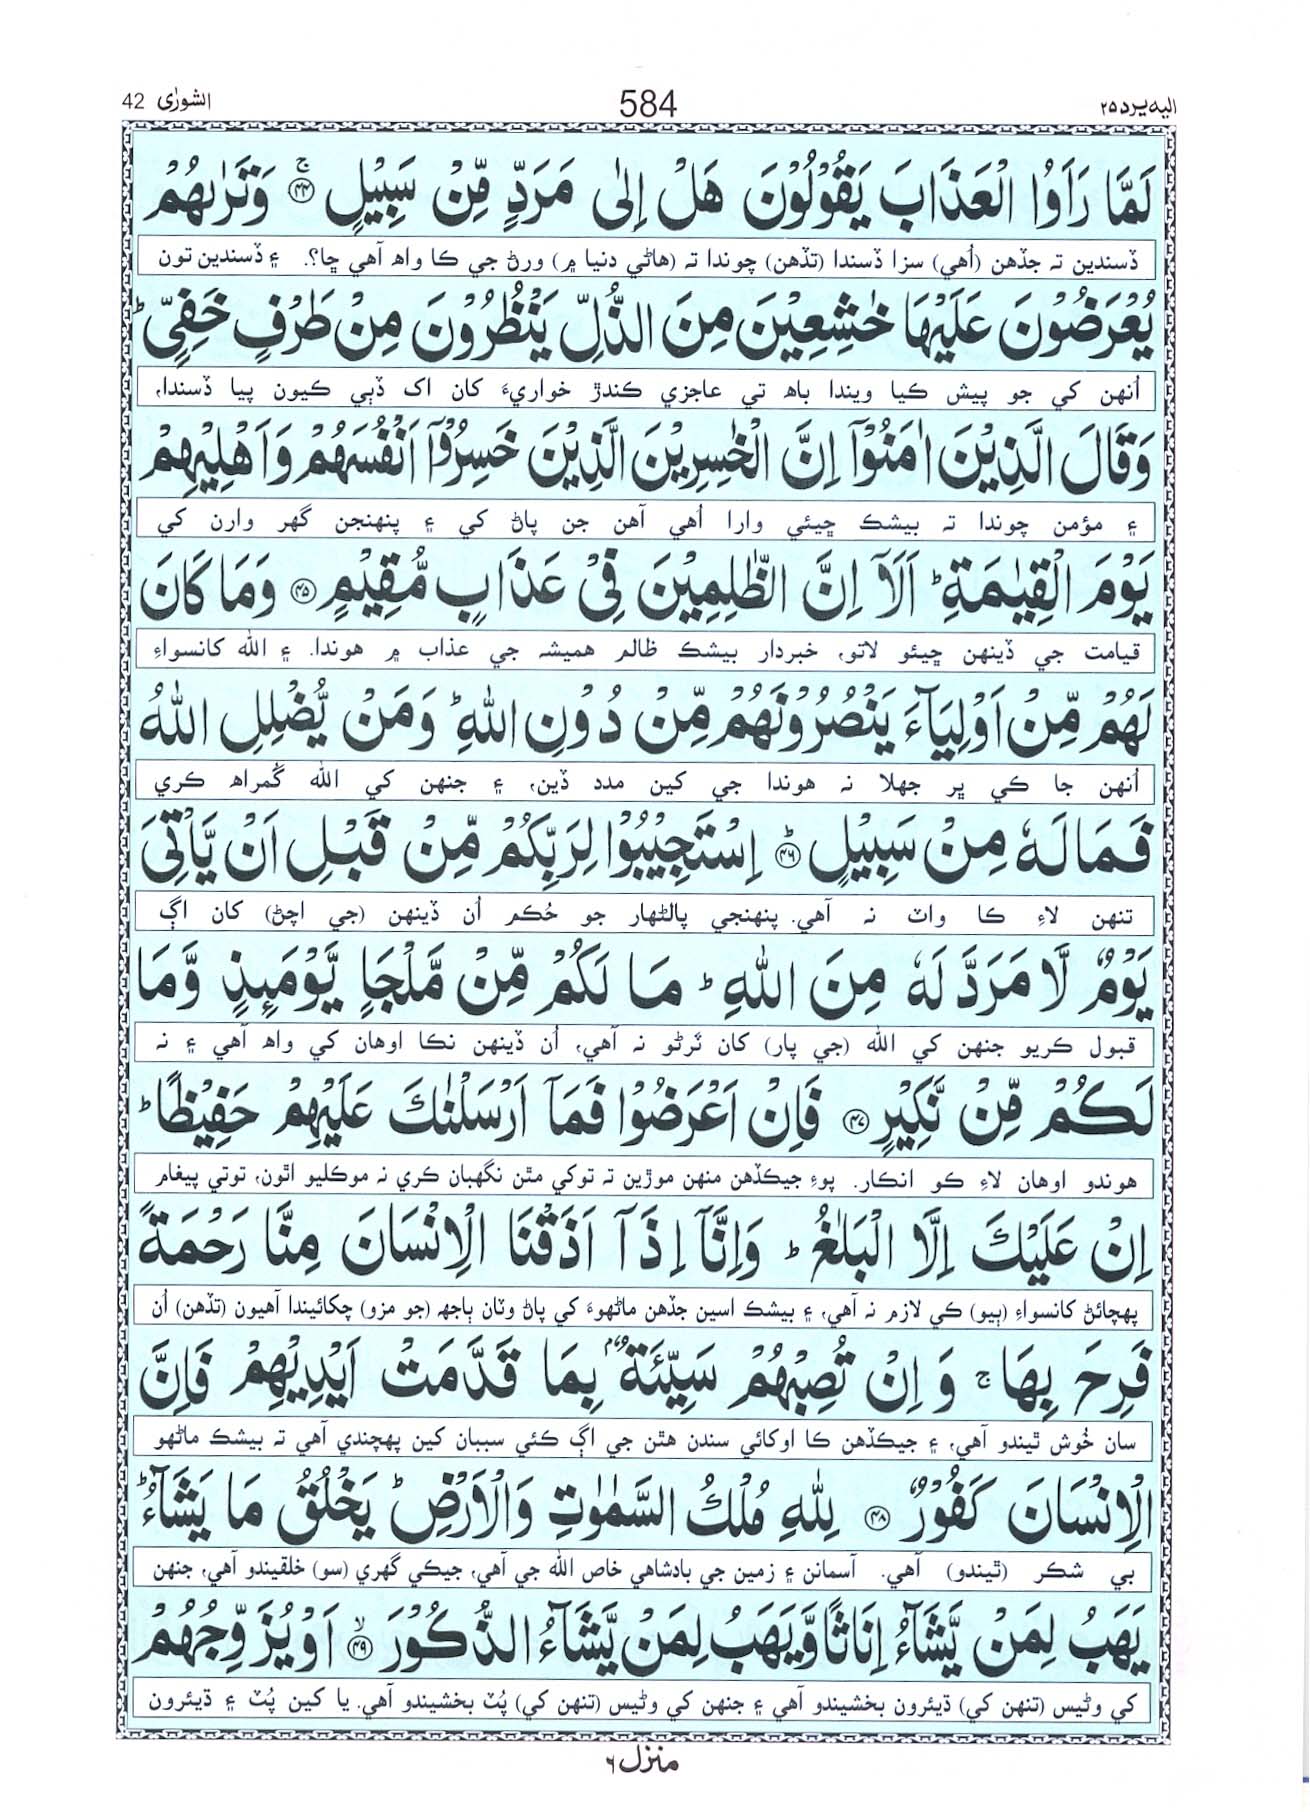 اليه يرد ٢٥ 584 الشورٰى 42
لَمَّا رَاَوُا الْعَذَابَ يَقُوْلُوْنَ هَلْ اِلٰى مَرَدٍّ مِّنْ سَبِيْلٍ ۚ﴿۴۴﴾ وَتَرٰىهُمْ
ڏسندين تہ جڏهن (اُهي) سزا ڏسندا (تڏهن) چوندا تہ (هاڻي دنيا ۾) ورڻ جي ڪا واھ آهي ڇا؟. ۽ ڏسندين تون
يُعْرَضُوْنَ عَلَيْهَا خٰشِعِيْنَ مِنَ الذُّلِّ يَنْظُرُوْنَ مِنْ طَرْفٍ خَفِيٍّ ؕ
اُنهن کي جو پيش ڪيا ويندا باھ تي عاجزي ڪندڙ خواريءَ کان اک ڏٻي ڪيون پيا ڏسندا،
وَقَالَ الَّذِيْنَ اٰمَنُوْٓا اِنَّ الْخٰسِرِيْنَ الَّذِيْنَ خَسِرُوْٓا اَنْفُسَهُمْ وَاَهْلِيْهِمْ
۽ مؤمن چوندا تہ بيشڪ ڇيئي وارا اُهي آهن جن پاڻ کي ۽ پنهنجن گهر وارن کي
يَوْمَ الْقِيٰمَةِ ؕ اَلَآ اِنَّ الظّٰلِمِيْنَ فِيْ عَذَابٍ مُّقِيْمٍ ﴿۴۵﴾ وَمَا كَانَ
قيامت جي ڏينهن ڇيئو لاتو، خبردار بيشڪ ظالم هميشہ جي عذاب ۾ هوندا. ۽ الله کانسواءِ
لَهُمْ مِّنْ اَوْلِيَآءَ يَنْصُرُوْنَهُمْ مِّنْ دُوْنِ اللّٰهِ ؕ وَمَنْ يُّضْلِلِ اللّٰهُ
اُنهن جا ڪي ڀر جهلا نہ هوندا جي کين مدد ڏين، ۽ جنهن کي الله گمراھ ڪري
فَمَا لَهٗ مِنْ سَبِيْلٍ ؕ﴿۴۶﴾ اِسْتَجِيْبُوْا لِرَبِّكُمْ مِّنْ قَبْلِ اَنْ يَّاْتِيَ
تنهن لاءِ ڪا واٽ نہ آهي. پنهنجي پالڻهار جو حُڪم اُن ڏينهن (جي اچڻ) کان اڳ
يَوْمٌ لَّا مَرَدَّ لَهٗ مِنَ اللّٰهِ ؕ مَا لَكُمْ مِّنْ مَّلْجَاٍ يَّوْمَىِٕذٍ وَّمَا
قبول ڪريو جنهن کي الله (جي پار) کان ٽرڻو نہ آهي، اُن ڏينهن نڪا اوهان کي واھ آهي ۽ نہ
لَكُمْ مِّنْ نَّكِيْرٍ ﴿۴۷﴾ فَاِنْ اَعْرَضُوْا فَمَآ اَرْسَلْنٰكَ عَلَيْهِمْ حَفِيْظًا ؕ
هوندو اوهان لاءِ ڪو انڪار. پوءِ جيڪڏهن منهن موڙين تہ توکي مٿن نگهبان ڪري نہ موڪليو اٿون، توتي پيغام
اِنْ عَلَيْكَ اِلَّا الْبَلٰغُ ؕ وَاِنَّآ اِذَآ اَذَقْنَا الْاِنْسَانَ مِنَّا رَحْمَةً
پهچائڻ کانسواءِ (ٻيو) ڪي لازم نہ آهي، ۽ بيشڪ اسين جڏهن ماڻهوءَ کي پاڻ وٽان ٻاجهہ (جو مزو) چکائيندا آهيون (تڏهن) اُن
فَرِحَ بِهَا ۚ وَ اِنْ تُصِبْهُمْ سَيِّئَةٌۢ بِمَا قَدَّمَتْ اَيْدِيْهِمْ فَاِنَّ
سان خُوش ٿيندو آهي، ۽ جيڪڏهن ڪا اوکائي سندن هٿن جي اڳ ڪئي سببان کين پهچندي آهي تہ بيشڪ ماڻهو
الْاِنْسَانَ كَفُوْرٌ ﴿۴۸﴾ لِلّٰهِ مُلْكُ السَّمٰوٰتِ وَالْاَرْضِ ؕ يَخْلُقُ مَا يَشَآءُ ؕ
بي شڪر (ٿيندو) آهي. آسمانن ۽ زمين جي بادشاهي خاص الله جي آهي، جيڪي گهري (سو) خلقيندو آهي، جنهن
يَهَبُ لِمَنْ يَّشَآءُ اِنَاثًا وَّيَهَبُ لِمَنْ يَّشَآءُ الذُّكُوْرَ ۙ﴿۴۹﴾ اَوْ يُزَوِّجُهُمْ
کي وڻيس (تنهن کي) ڌيئرون بخشيندو آهي ۽ جنهن کي وڻيس (تنهن کي) پُٽ بخشيندو آهي. يا کين پُٽ ۽ ڌيئرون
منزل ٦